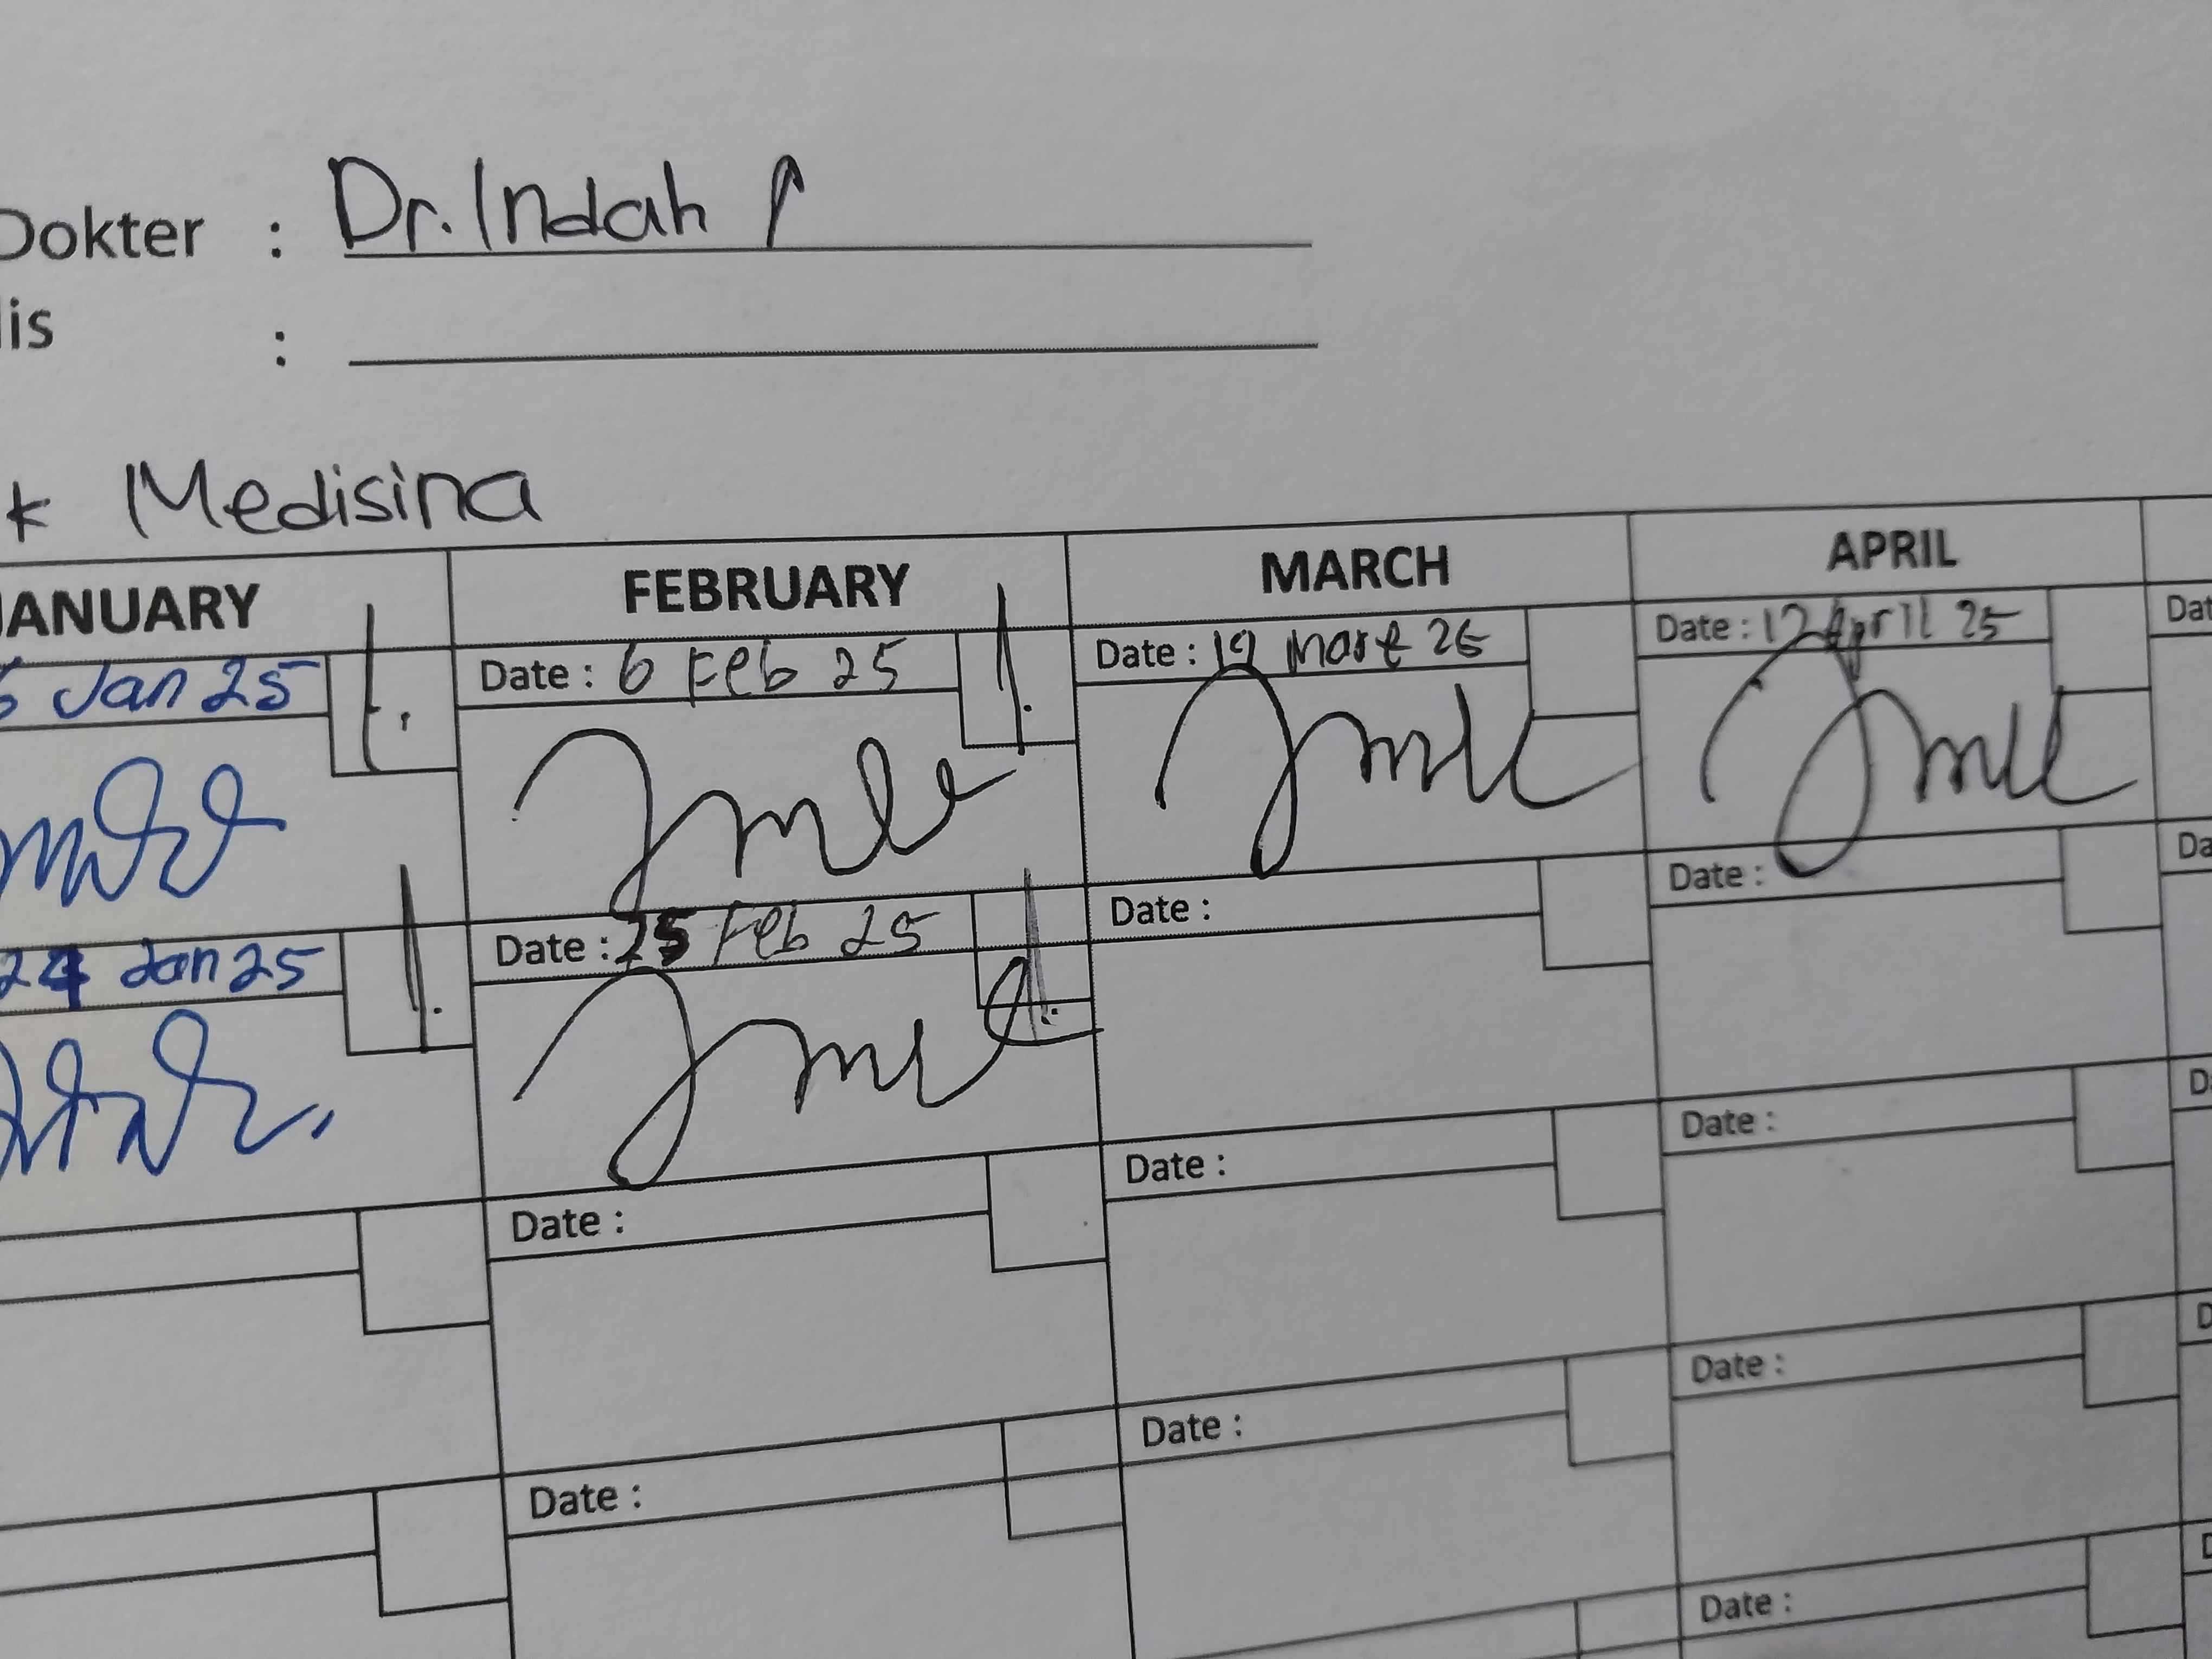 Dokter : Dr. Indah P
lis :
k Medisina
JANUARY FEBRUARY MARCH APRIL
Jan 25 Date : 6 Feb 25 Date : 19 Mart 25 Date : 12 April 25 Dat
24 Jan 25 Date : 25 Feb 25 Date : Date : Da
Date : Date : Date : D
Date : Date : Date : D
Date : D